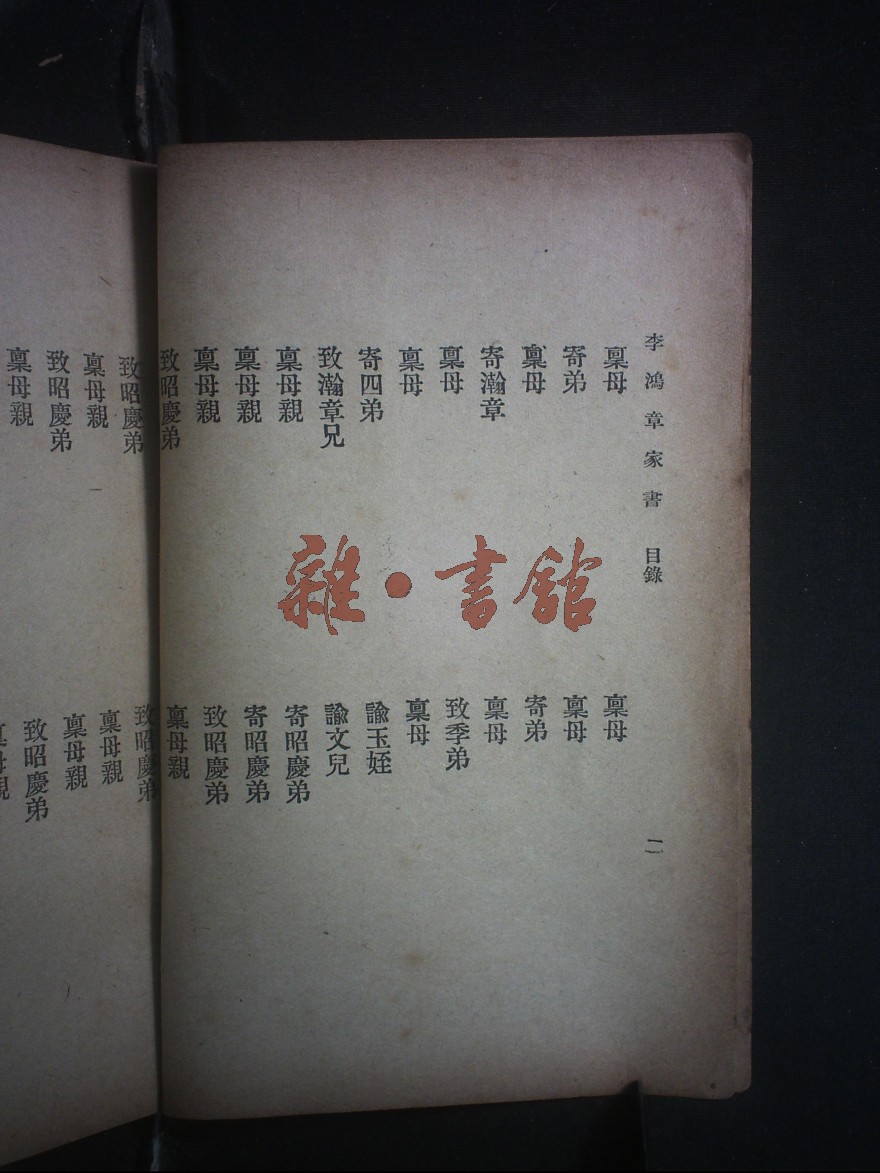 李鴻章家書 目錄 二
稟母
稟母
寄弟
稟母
稟母
寄弟
寄瀚章
稟母
稟母
致季弟
稟母
稟母
寄四弟
諭玉姪
致瀚章兄
諭文兒
稟母親
寄昭慶弟
稟母親
寄昭慶弟
稟母親
致昭慶弟
致昭慶弟
稟母親
致昭慶弟
致昭慶弟
稟母親
稟母親
致昭慶弟
稟母親
稟母親
致昭慶弟
雜•書館